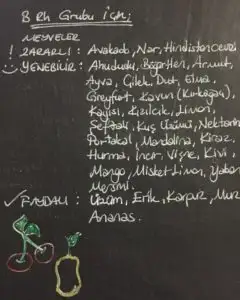 B Rh Grubu İçin;
MEYVELER
! ZARARLI : Avakado, Nar, Hindistancevizi
YENEBİLİR : Ahududu, Böğürtlen, Armut,
Ayva, Çilek, Dut, Elma,
Greyfurt, Kavun (Kırkağaç),
Kayısı, Kızılcık, Limon,
Şeftali, Kuş Üzümü, Nektarin
Portakal, Mandalina, Kiraz
Hurma, İncir, Vişne, Kivi,
Mango, Misket Limon, Yaban
Mersini.
✓ FAYDALI : Üzüm, Erik, Karpuz, Muz
Ananas.